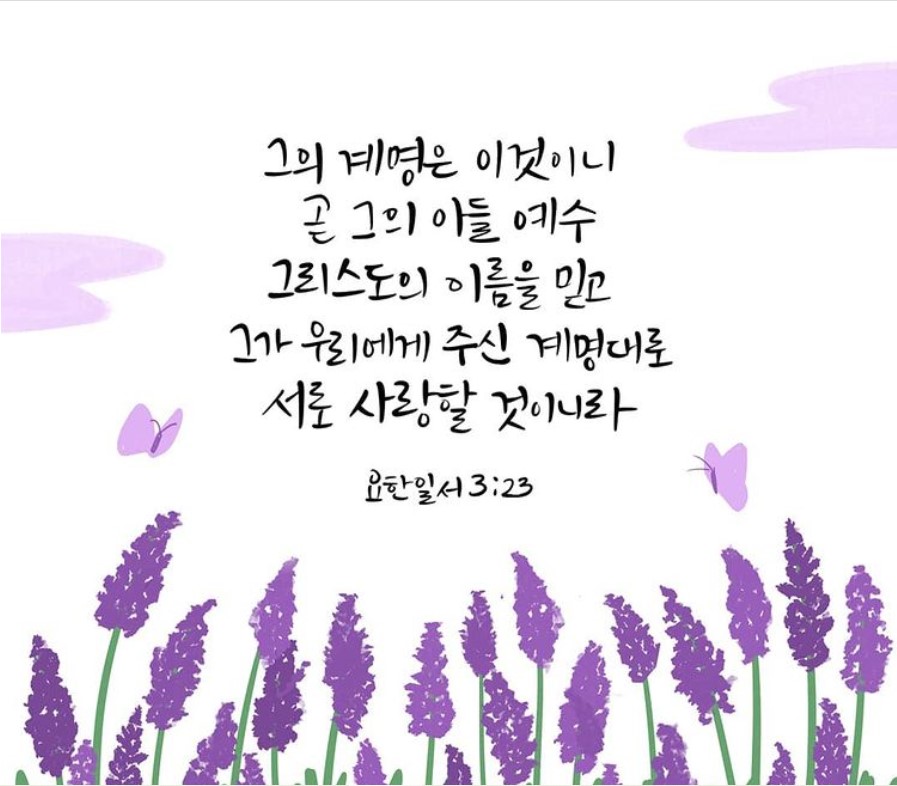 그의 계명은 이것이니
곧 그의 아들 예수
그리스도의 이름을 믿고
그가 우리에게 주신 계명대로
서로 사랑할 것이니라
요한일서 3:23